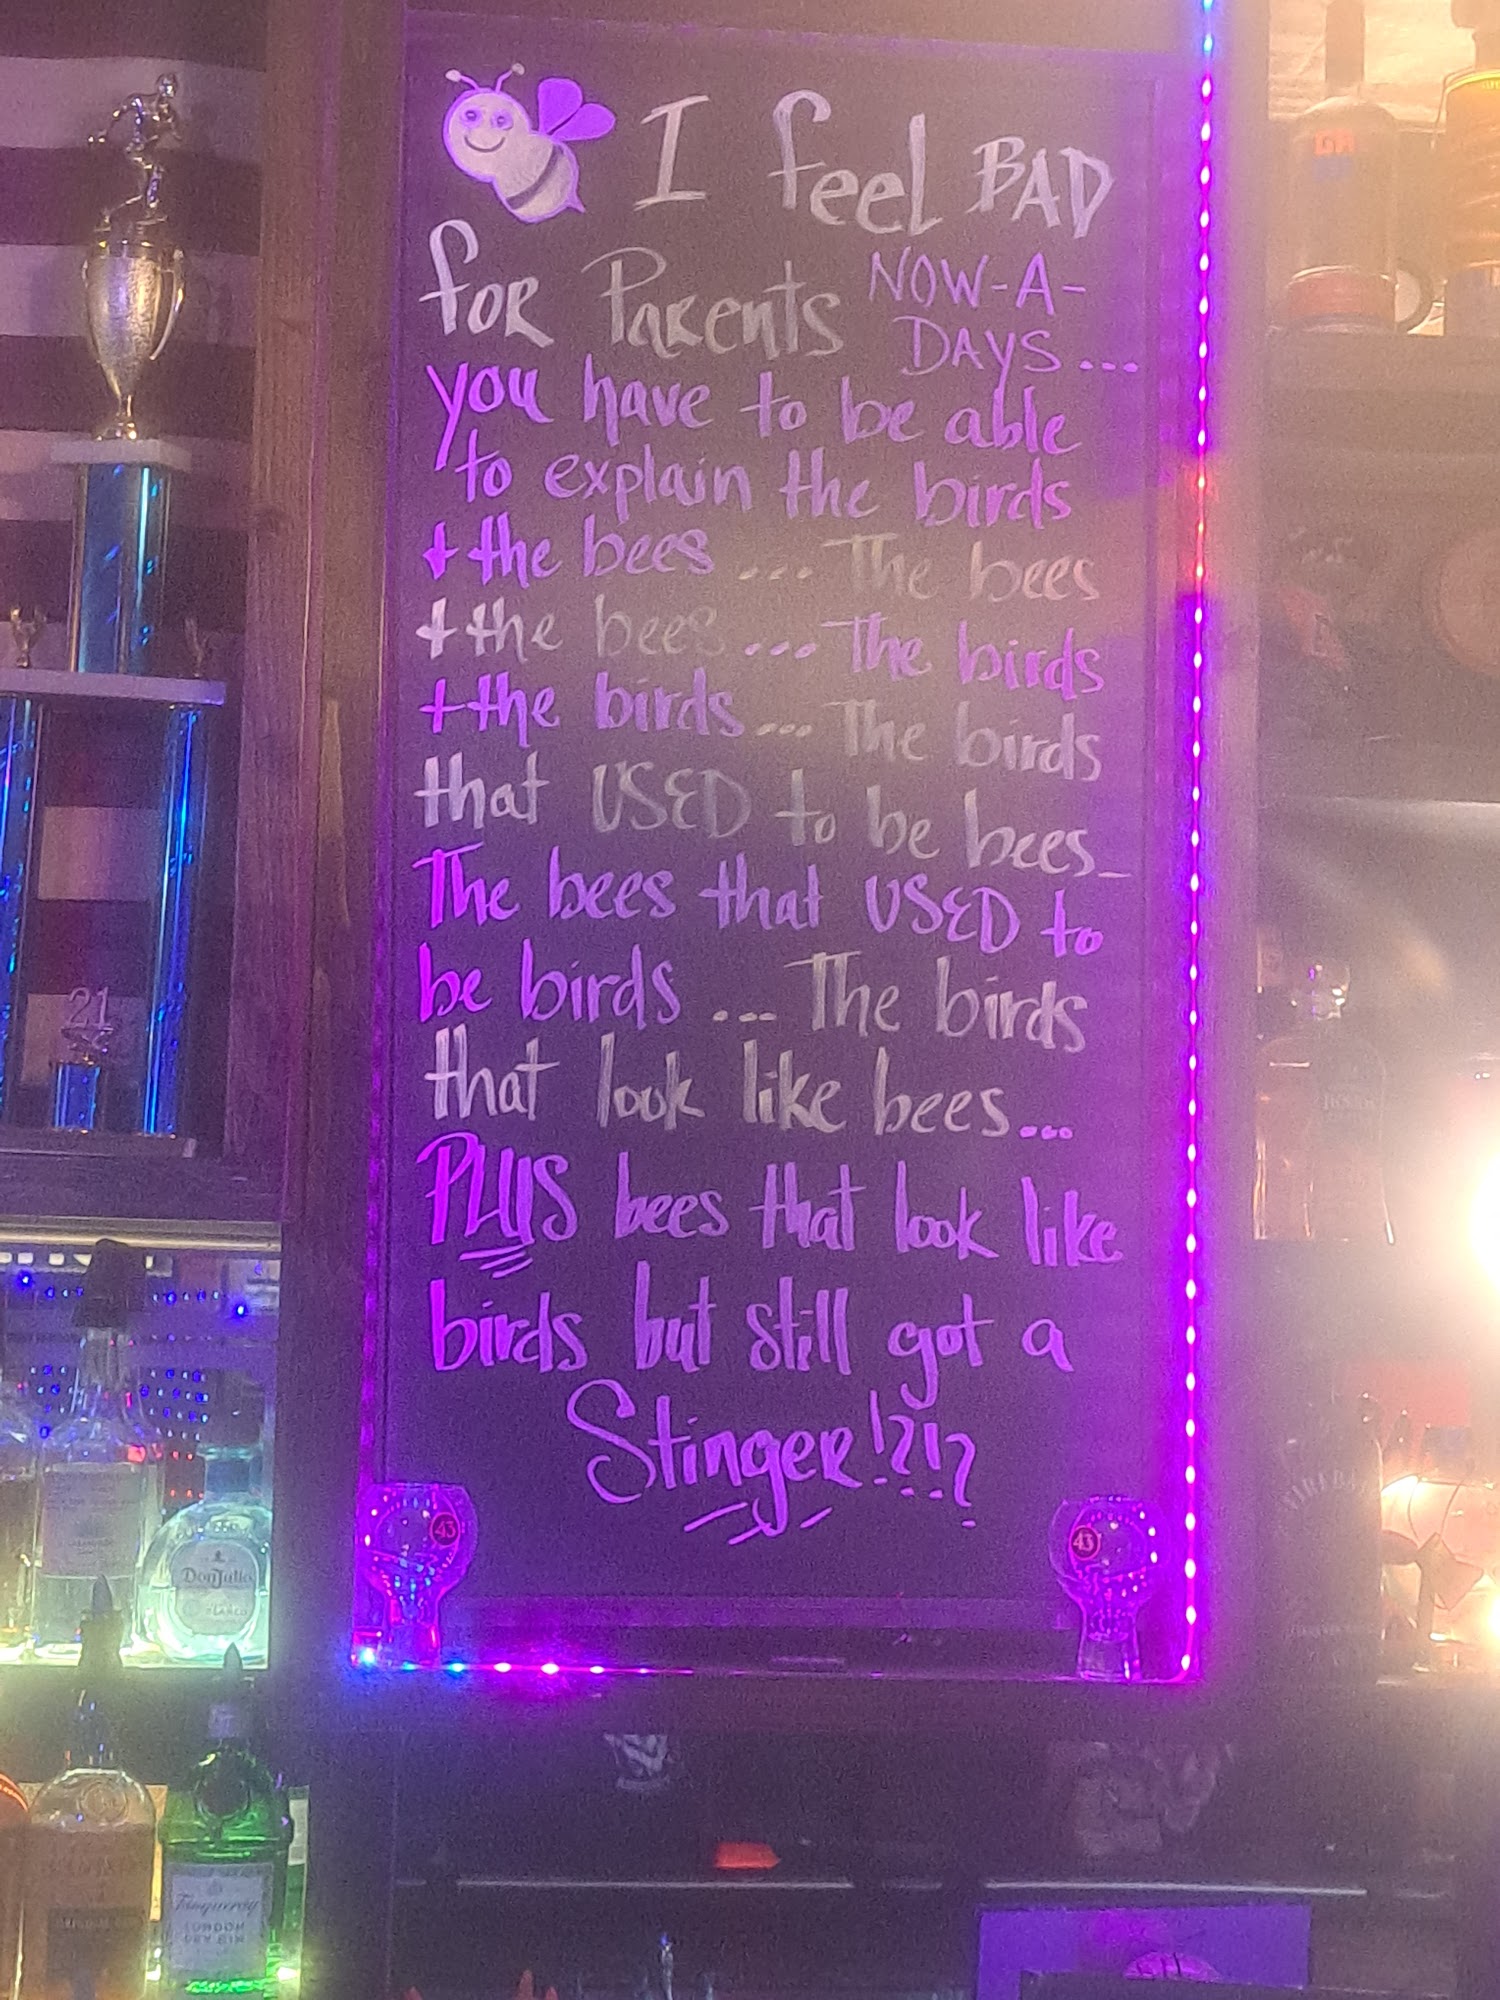 I feel BAD
for Parents NOW-A-
DAYS...
you have to be able
to explain the birds
+ the bees ... The bees
+ the bees ... The birds
+ the birds ... The birds
that USED to be bees_
The bees that USED to
be birds ... The birds
that look like bees...
PLUS bees that look like
birds but still got a
Stinger!?!?
43
43
21
Don Julio
BLANCO
Tanqueray
LONDON
DRY GIN